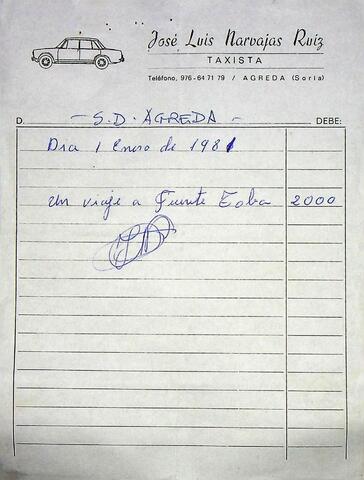 José Luis Narvajas Ruiz
TAXISTA
Teléfono, 976-64 71 79 / AGREDA (Soria)
D. - S.D. AGREDA - DEBE:
Dia 1 Enero de 1981
un viaje a Fuente Toba 2000